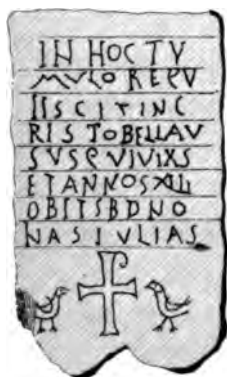 IN HOC TV
MVLO REPV
IISCITINC
RISTOBELLAV
SVSQVIVIXS
ET ANNOS XLI
OBITSBDNO
NAS IVLIAS